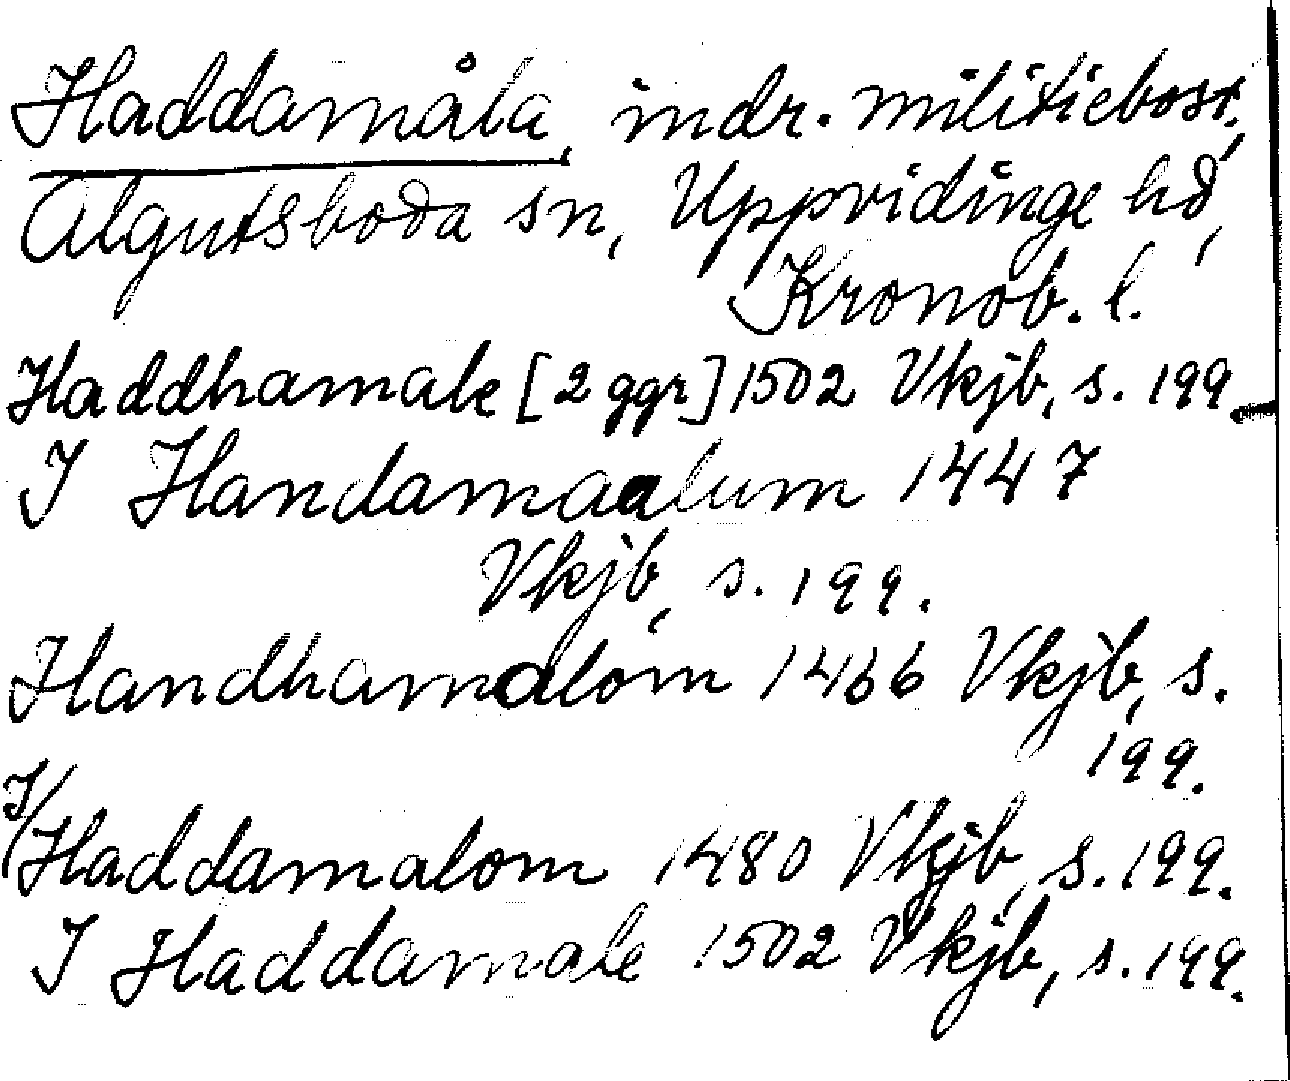 Haddamåla, indr. militiebost.,
Algutsboda sn, Uppvidinge hd,
Kronob. l.
Haddhamale [2 ggr] 1502 Vkjb, s. 199
I Handamaalum 1447
Vkjb, s. 199.
Handhamalom 1466 Vkjb, s.
199.
I/Haddamalom 1480 Vkjb, s. 199.
I Haddamale 1502 Vkjb, s. 199.